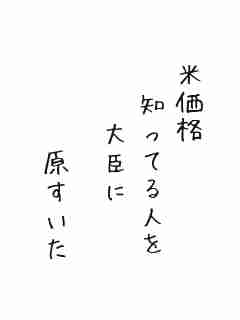 米価格
知ってる人を
大臣に
原すいた